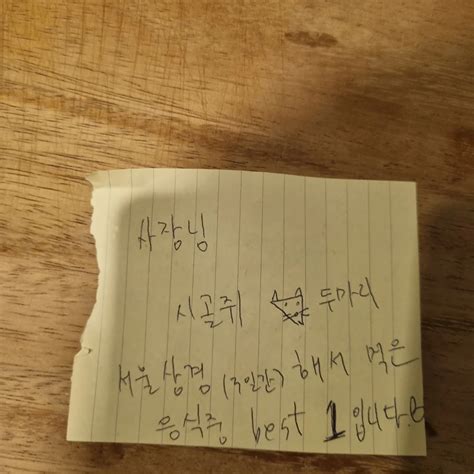 사장님
시골쥐 두마리
서울상경 (3일간) 해서 먹은
음식중 best 1입니다.